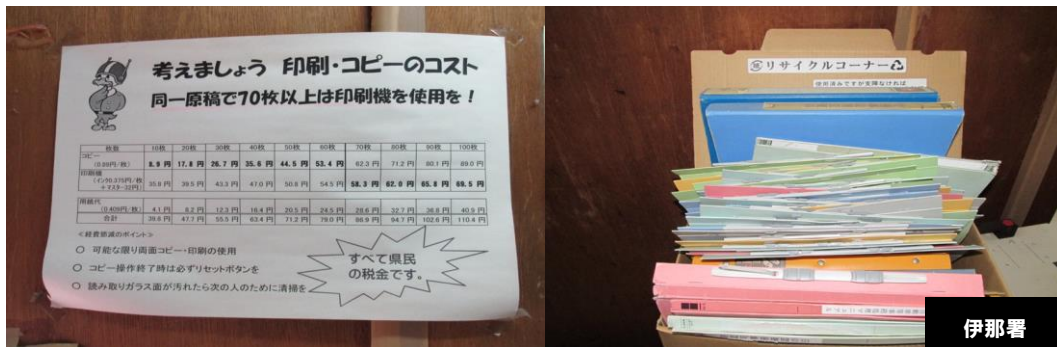 考えましょう 印刷・コピーのコスト
同一原稿で70枚以上は印刷機を使用を！
枚数 10枚 20枚 30枚 40枚 50枚 60枚 70枚 80枚 90枚 100枚
コピー
(0.89円/枚) 8.9 円 17.8 円 26.7 円 35.6 円 44.5 円 53.4 円 62.3 円 71.2 円 80.1 円 89.0 円
印刷機
(インク0.375円/枚
+マスター32円) 35.8 円 39.5 円 43.3 円 47.0 円 50.8 円 54.5 円 58.3 円 62.0 円 65.8 円 69.5 円
用紙代
(0.409円/枚) 4.1 円 8.2 円 12.3 円 16.4 円 20.5 円 24.5 円 28.6 円 32.7 円 36.8 円 40.9 円
合計 39.6 円 47.7 円 55.5 円 63.4 円 71.2 円 79.0 円 86.9 円 94.7 円 102.6 円 110.4 円
<経費節減のポイント>
○ 可能な限り両面コピー・印刷の使用
○ コピー操作終了時は必ずリセットボタンを
○ 読み取りガラス面が汚れたら次の人のために清掃を
すべて県民
の税金です。
リサイクルコーナー
使用済みですが支障なければ
伊那署